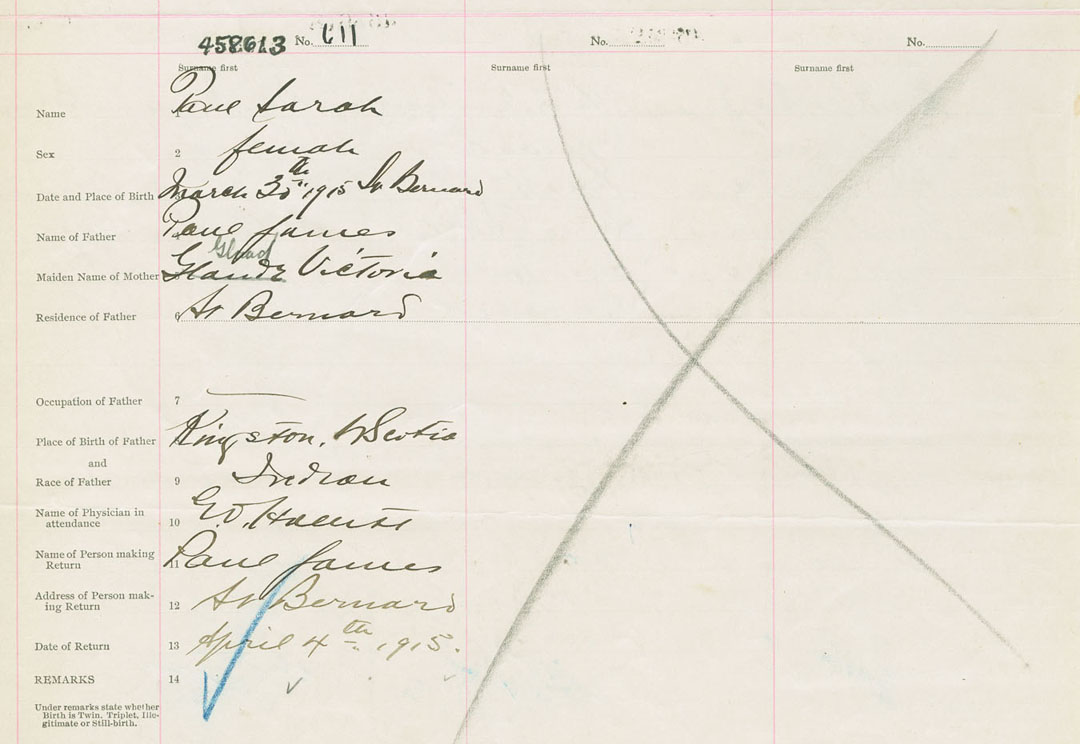 458613 No. C11 No. No.
Surname first Surname first Surname first
Name Paul Sarah
Sex 2 female
Date and Place of Birth March 30th 1915 St Bernard
Name of Father Paul James
Gload
Maiden Name of Mother Glaude Victoria
Residence of Father 6 St Bernard
Occupation of Father 7
Place of Birth of Father Kingston, N Scotia
and
Race of Father 9 Indian
Name of Physician in
attendance 10
Name of Person making
Return 11 Paul James
Address of Person mak-
ing Return 12 St Bernard
Date of Return 13 April 4th 1915.
REMARKS 14
Under remarks state whether
Birth is Twin, Triplet, Ille-
gitimate or Still-birth.